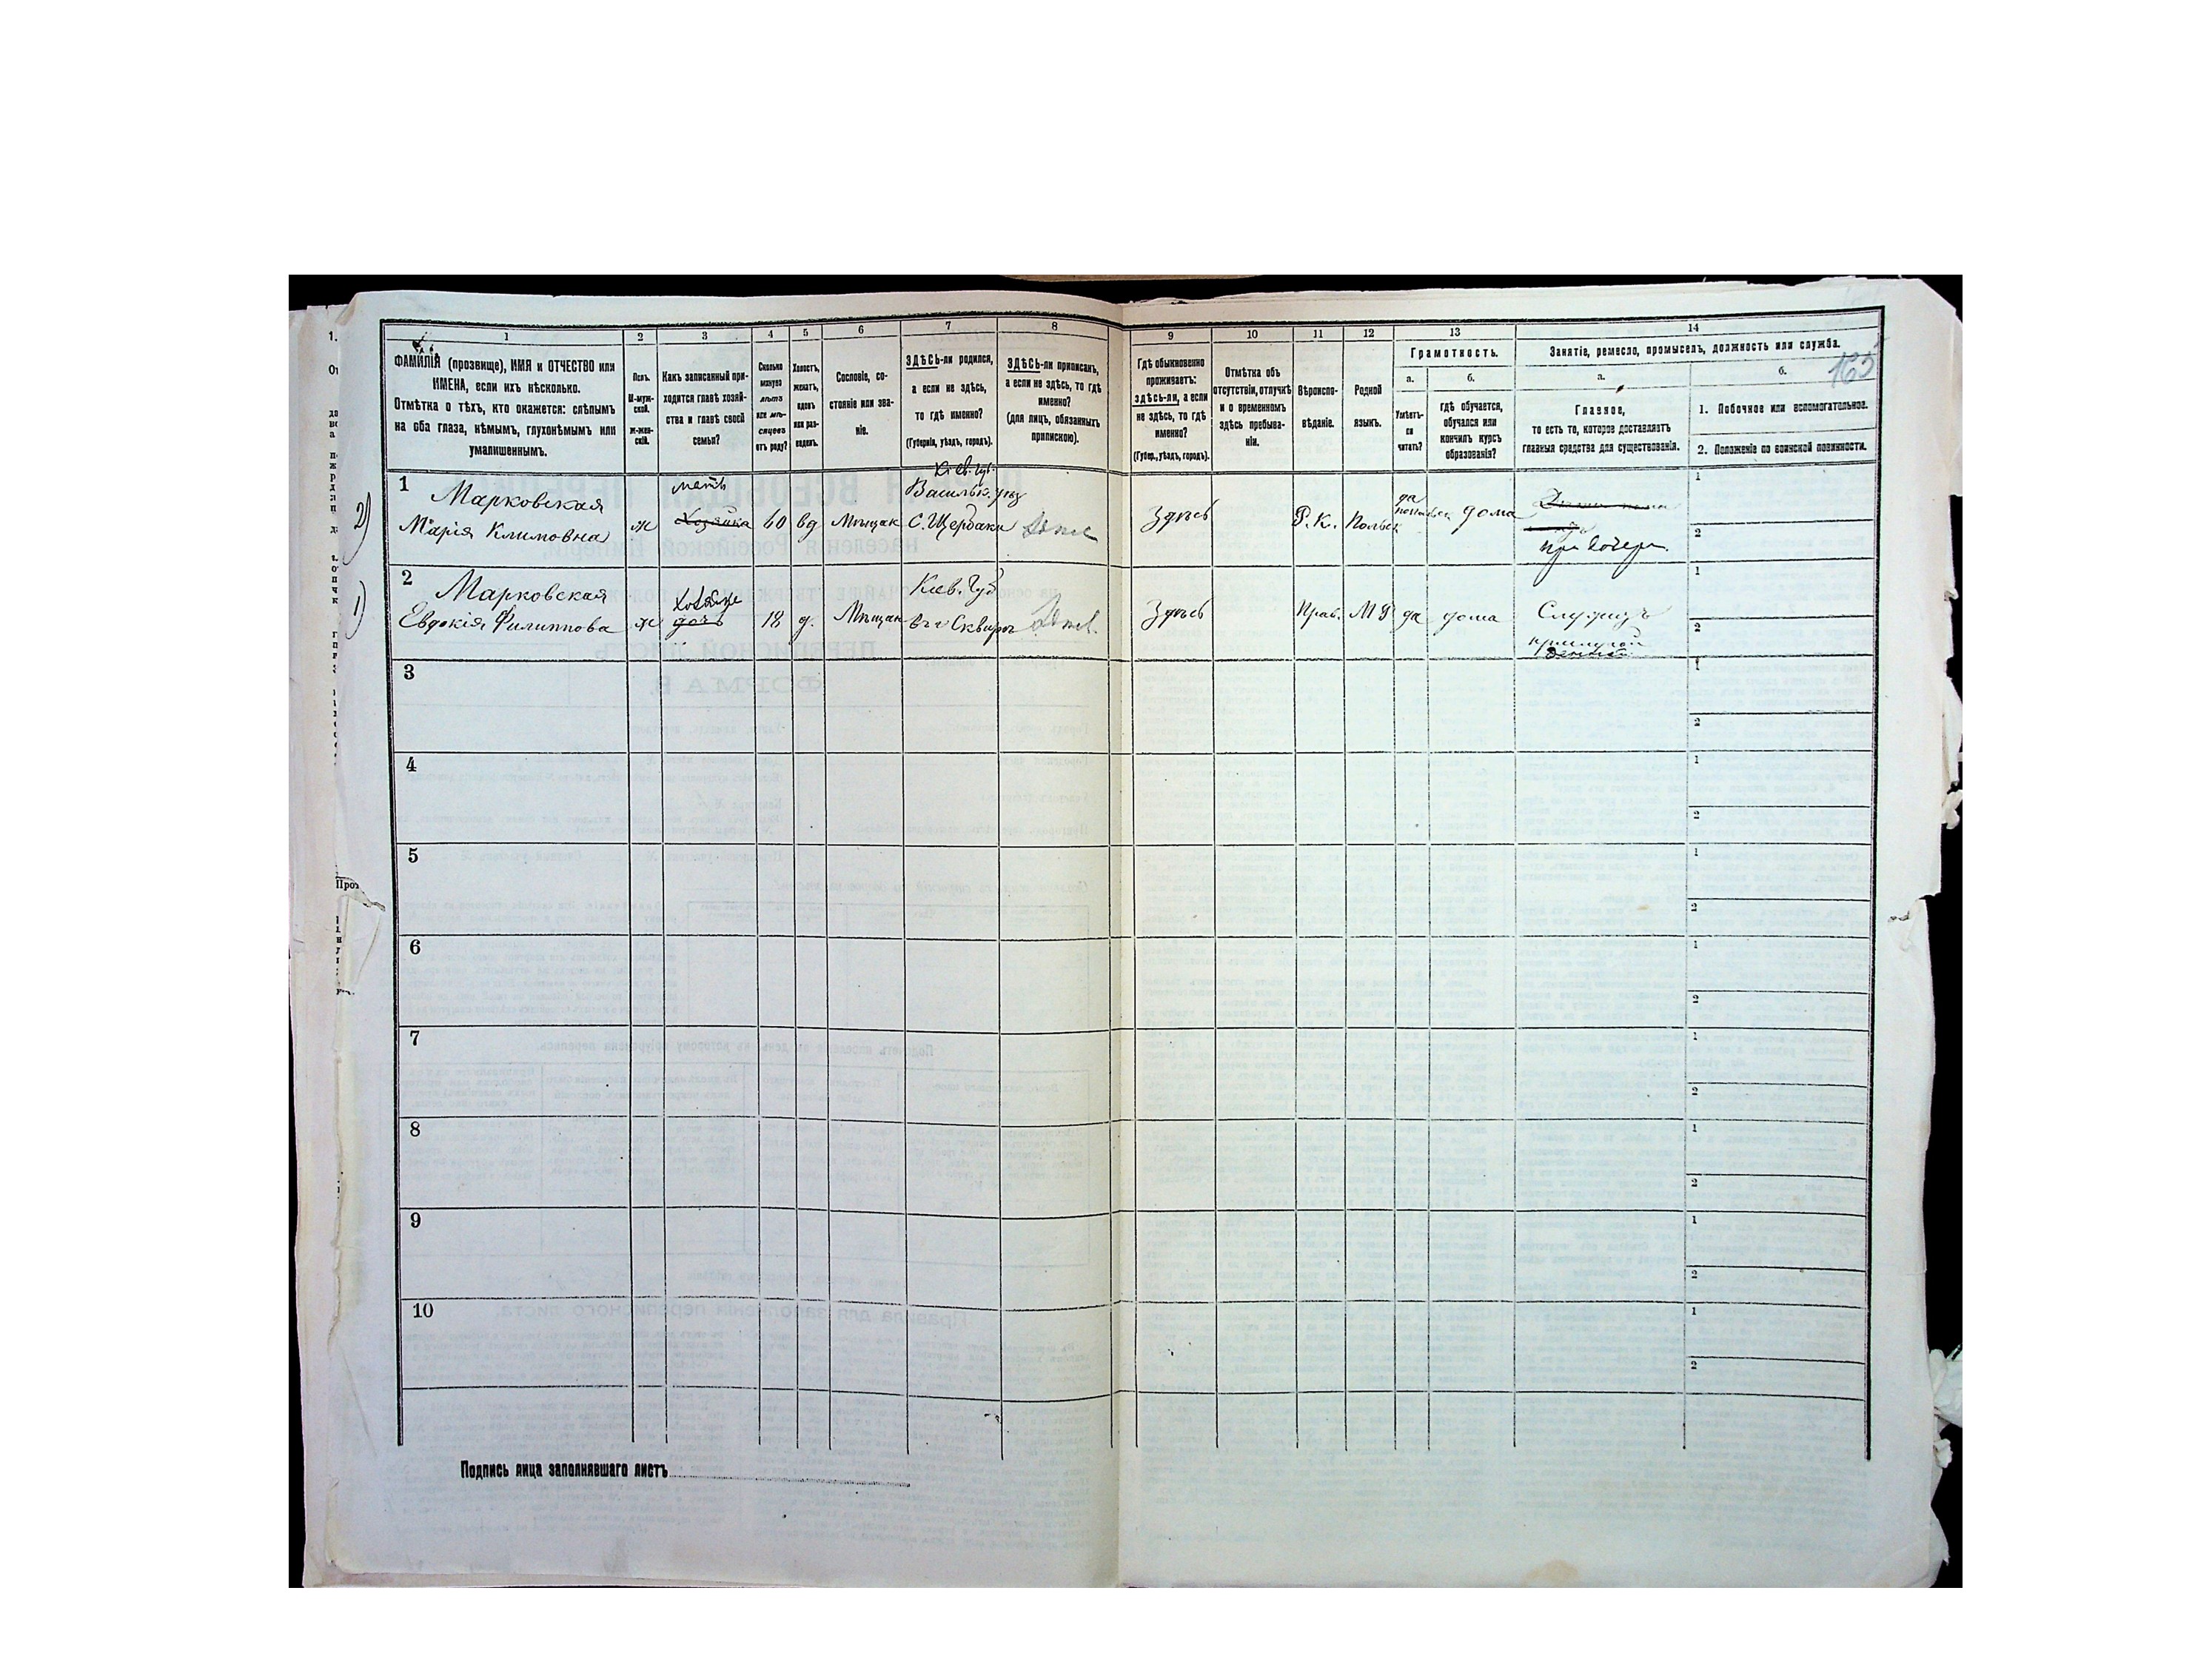 1 2 3 4 5 6 7 8 9 10 11 12 13 14
ФАМИЛІЯ (прозвище), ИМЯ и ОТЧЕСТВО или
ИМЕНА, если ихъ нѣсколько.
Отмѣтка о тѣхъ, кто окажется: слѣпымъ
на оба глаза, нѣмымъ, глухонѣмымъ или
умалишеннымъ.
Полъ.
М-муж-
ской.
ж-жен-
скій.
Какъ записанный при-
ходится главѣ хозяй-
ства и главѣ своей
семьи?
Сколько
минуло
лѣтъ
или мѣ-
сяцевъ
отъ роду?
Холостъ,
женатъ,
вдовъ
или раз-
веденъ.
Сословіе, со-
стояніе или зва-
ніе.
ЗДѢСЬ-ли родился,
а если не здѣсь,
то гдѣ именно?
(Губернія, уѣздъ, городъ).
ЗДѢСЬ-ли приписанъ,
а если не здѣсь, то гдѣ
именно?
(для лицъ, обязанныхъ
припискою).
Гдѣ обыкновенно
проживаетъ:
здѣсь-ли, а если
не здѣсь, то гдѣ
именно?
(Губер., уѣздъ, городъ).
Отмѣтка объ
отсутствіи, отлучкѣ
и о временномъ
здѣсь пребыва-
ніи.
Вѣроиспо-
вѣданіе.
Родной
языкъ.
Грамотность.
а.
Умѣетъ-
ли
читать?
б.
гдѣ обучается,
обучался или
кончилъ курсъ
образованія?
Занятіе, ремесло, промыселъ, должность или служба.
163
а.
Главное,
то есть то, которое доставляетъ
главныя средства для существованія.
б.
1. Побочное или вспомогательное.
2. Положеніе по воинской повинности.
2)
1
Марковская
Марія Климовна
ж
мать
Хозяйка
60
вд
Мѣщан
Кіев. губ.
Васильк. уѣз
С. Щербаки
Здѣсь
Р. К.
Польск
да
дома
при дочери
1
2
1)
2
Марковская
Евдокія Филиппова
ж
дочь
18
д.
Мѣщан
Кіев. Губ
Здѣсь
Прав.
да
дома
Служитъ
1
2
3
1
2
4
1
2
5
1
2
6
1
2
7
1
2
8
1
2
9
1
2
10
1
2
Подпись лица заполнявшаго листъ